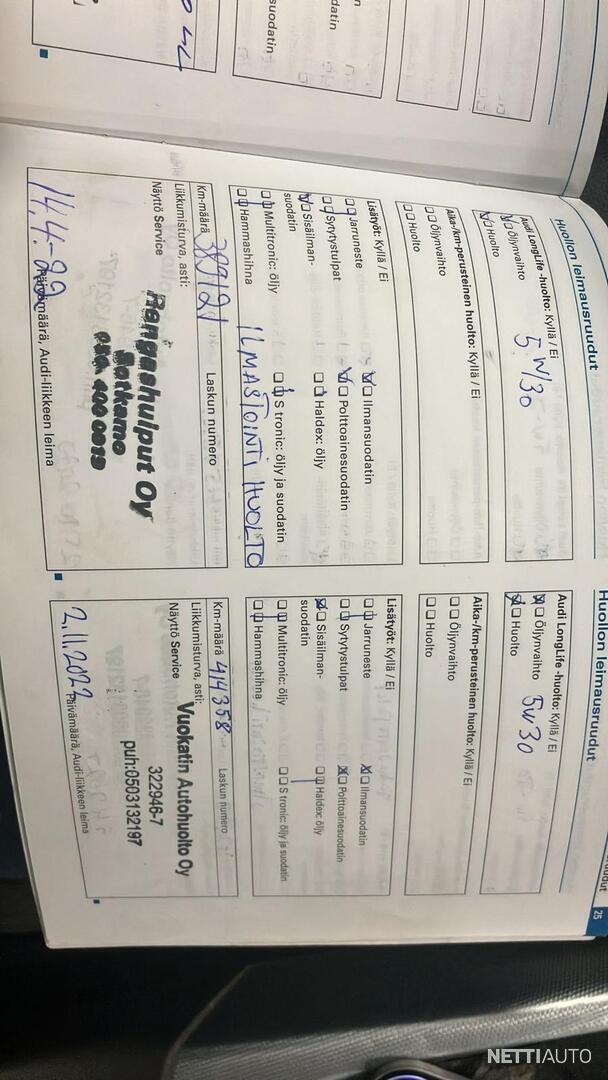 Huollon leimausruudut
Audi LongLife -huolto: Kyllä / Ei
Öljynvaihto 5W/30
Huolto
Aika-/km-perusteinen huolto: Kyllä / Ei
Öljynvaihto
Huolto
Lisätyöt: Kyllä / Ei
Jarruneste
Ilmansuodatin
Sytytystulpat
Polttoainesuodatin
Sisäilman-
suodatin
Haldex: öljy
Multitronic: öljy
S tronic: öljy ja suodatin
Hammashihna
ILMASTOINTI HUOLTO
Km-määrä 389121
Laskun numero
Liikkumisturva, asti:
Näyttö Service
Rengashulput Oy
Sotkamo
14.4-22
Päivämäärä, Audi-liikkeen leima
Huollon leimausruudut
Audi LongLife -huolto: Kyllä / Ei
Öljynvaihto 5W30
Huolto
Aika-/km-perusteinen huolto: Kyllä / Ei
Öljynvaihto
Huolto
Lisätyöt: Kyllä / Ei
Jarruneste
Ilmansuodatin
Sytytystulpat
Polttoainesuodatin
Sisäilman-
suodatin
Haldex: öljy
Multitronic: öljy
S tronic: öljy ja suodatin
Hammashihna
Km-määrä 414358
Laskun numero
Liikkumisturva, asti:
Näyttö Service
Vuokatin Autohuolto Oy
322946-7
puh:0503132197
2.11.2022
Päivämäärä, Audi-liikkeen leima
25
suodatin
NETTIAUTO